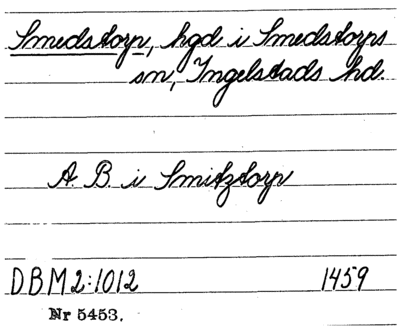 Smedstorp, hgd i Smedstorps
sn, Ingelstads hd.
A. B. i Smitztorp
DBM2:1012 1459
Nr 5453.